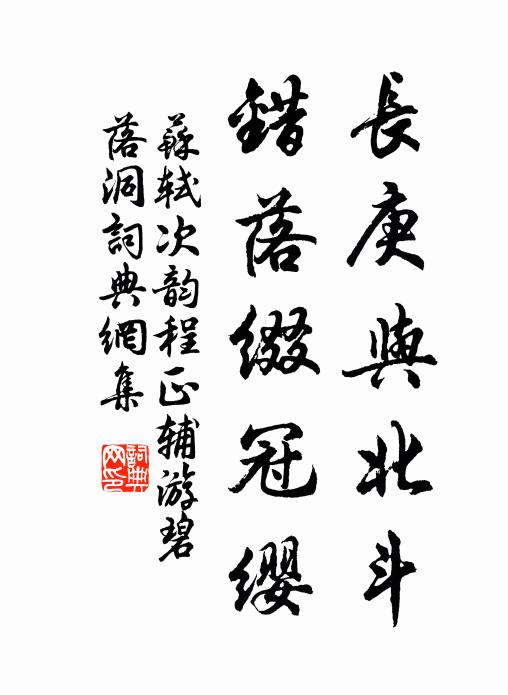 長庚與北斗
錯落綴冠纓
蘇轼次韵程正辅游碧
落洞詞典網集
詞典
网印